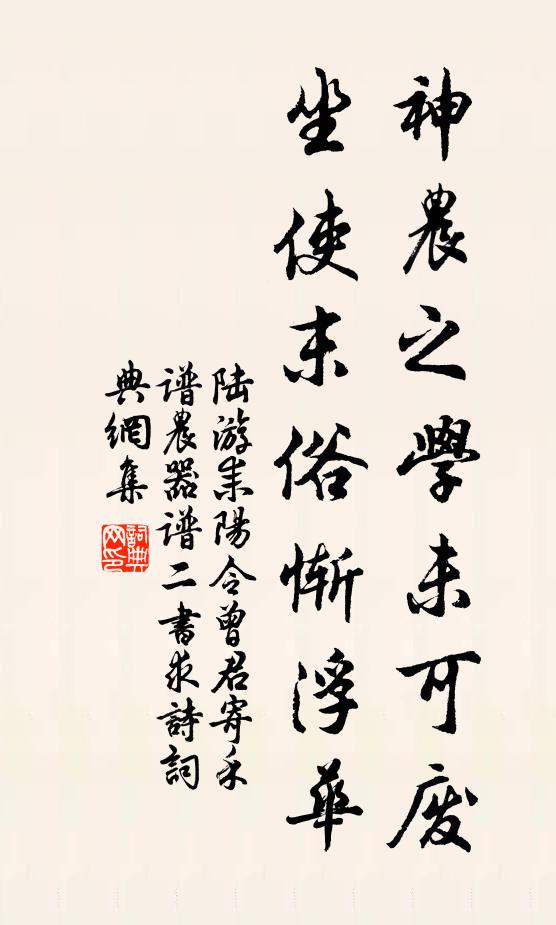 神農之學未可廢
坐使末俗慚浮華
陸游耒陽令曾君寄禾
譜農器譜二書求詩詞
典網集
詞典
网印